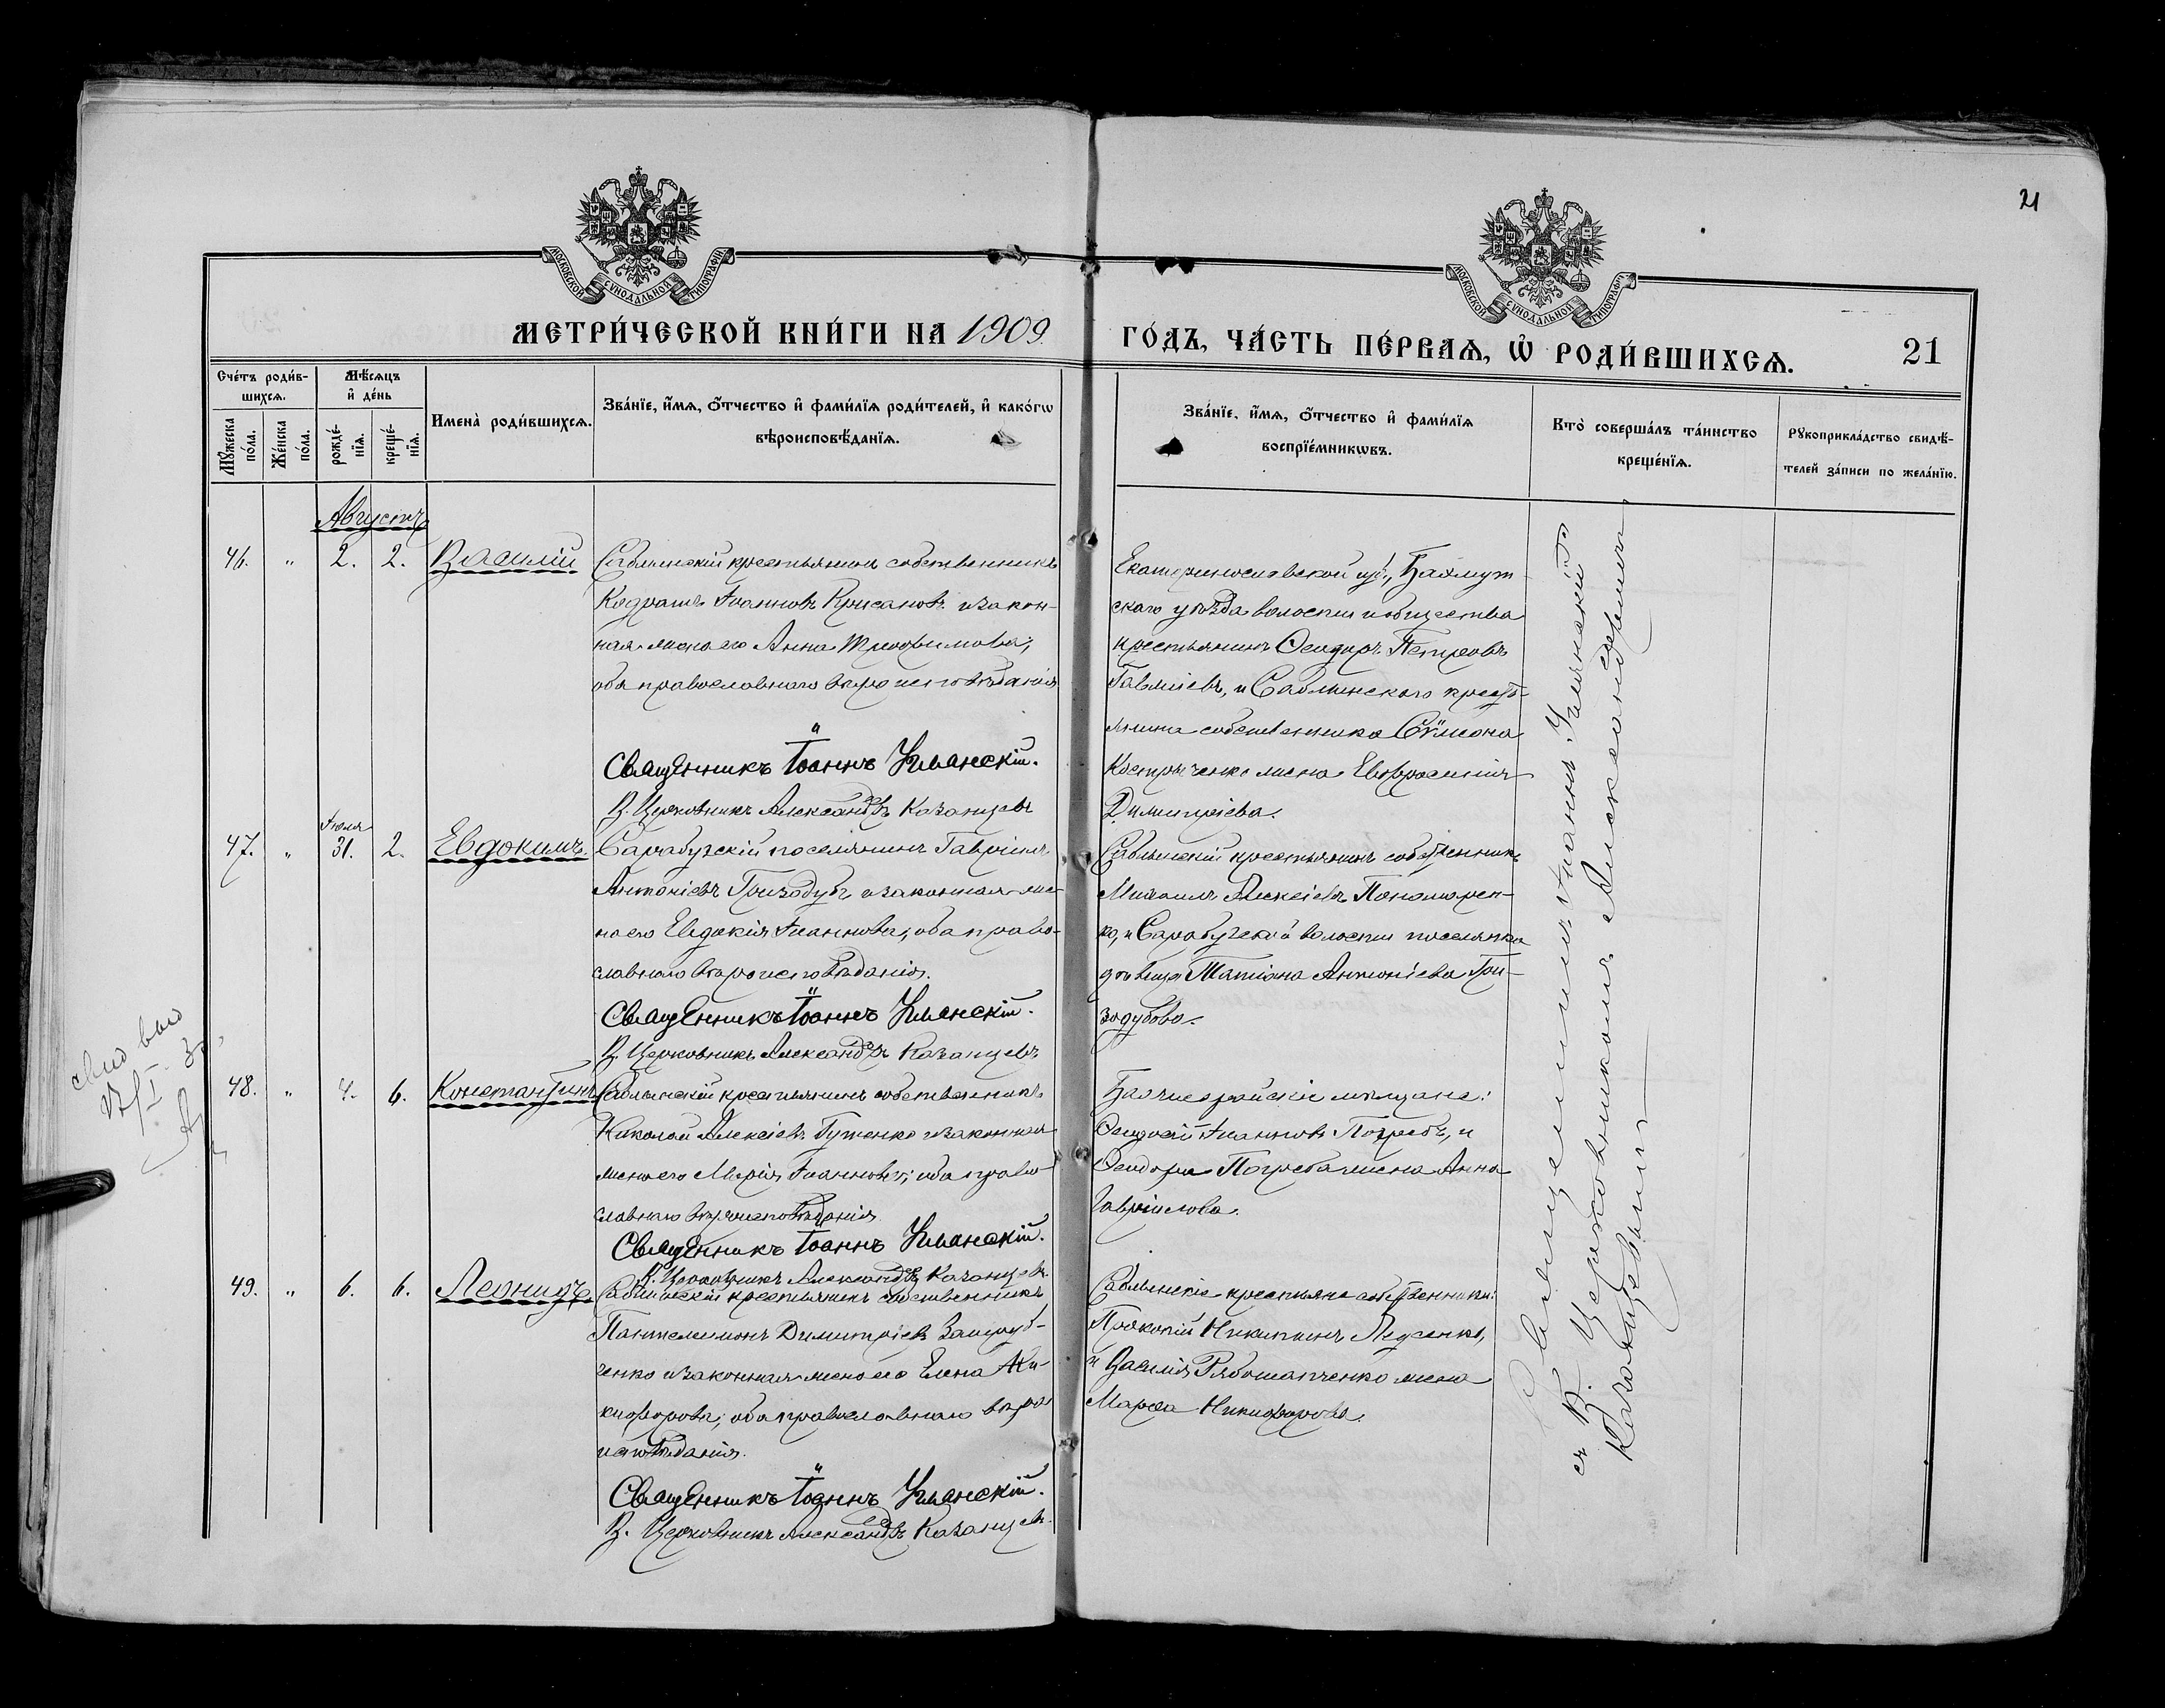 21
МОСКОВСКОЙ СѴНОДАЛЬНОЙ ТИПОГРАФІИ
МОСКОВСКОЙ СѴНОДАЛЬНОЙ ТИПОГРАФІИ
МЕТРИ́ЧЕСКОЙ КНИ́ГИ НА 1909
ГО́ДЪ, ЧА́СТЬ ПЕ́РВАѦ, Ѡ РОДИ́ВШИХСѦ.
21
Сче́тъ роди́в-
шихсѧ.
Мꙋ́жеска
по́ла.
Же́нска
по́ла.
Мѣ́сѧцъ
и҆ де́нь
рожде́-
нїѧ.
креще́-
нїѧ.
Имена̀ роди́вшихсѧ.
Зва́нїе, и҆́мѧ, ѻ҆́тчество и҆ фами́лїѧ роди́телей, и҆ како́гѡ
вѣроисповѣ́данїѧ.
Зва́нїе, и҆́мѧ, ѻ҆́тчество и҆ фами́лїѧ
воспрїе́мникѡвъ.
Кто̀ соверша́лъ та́инство
креще́нїѧ.
Рꙋкоприкла́дство свидѣ́-
телей за́писи по жела́нїю.
Августъ
46. " 2. 2. Василій
Саблинскій крестьянинъ собственникъ
Кодратъ Іоанновъ Крисановъ и закон-
ная жена его Анна Трофимова;
оба православнаго вѣроисповѣданія
Священникъ Іоаннъ Уманскій.
В. Церковникъ Александръ Казанцевъ
Екатеринославской губ., Бахмут-
скаго уѣзда волости и общества
крестьянинъ Ѳеодоръ Петровъ
и Саблинского кресть-
янина собственника Сѵмеона
Костриченко жена Евфросинія
Димитріева.
47. " Іюля 31. 2. Евдокимъ.
Сарабузскій поселянинъ Гавріилъ
Антоніевъ Гризодубъ и законная же-
на его Евдокія Іоаннова; оба право-
славнаго вѣроисповѣданія.
Священникъ Іоаннъ Уманскій.
В. Церковникъ Александръ Казанцевъ
Саблинскій крестьянинъ собственникъ
Михаилъ Алексіевъ Пономарен-
ко, и Сарабузской волости поселянка
дѣвица Татіана Антоніева Гри-
зодубова.
48. " 4. 6. Константинъ
Саблинскій крестьянинъ собственникъ
Николай Алексіевъ Гуженко и законная
жена его Марія Іоаннова; оба право-
славнаго вѣроисповѣданія
Священникъ Іоаннъ Уманскій.
В. Церковникъ Александръ Казанцевъ
Бахчисарайскіе мѣщане:
Іоанновъ Погребъ, и
Ѳеодора Погреба жена Анна
Гавріилова.
49. " 6. 6. Леонидъ
Саблинскій крестьянинъ собственникъ
Пантелеимонъ Димитріевъ
и законная жена его Елена Ни-
кифорова; оба православнаго вѣро
исповѣданія.
Священникъ Іоаннъ Уманскій.
В. Церковникъ Александръ Казанцевъ.
Саблинскіе крестьяне собственники:
Прокопій Никитинъ Педченко,
и Василія Рябошапченко жена
Марѳа Никифорова.
Священникъ Іоаннъ Уманскій
съ В. Церковникомъ Александромъ
Казанцевымъ